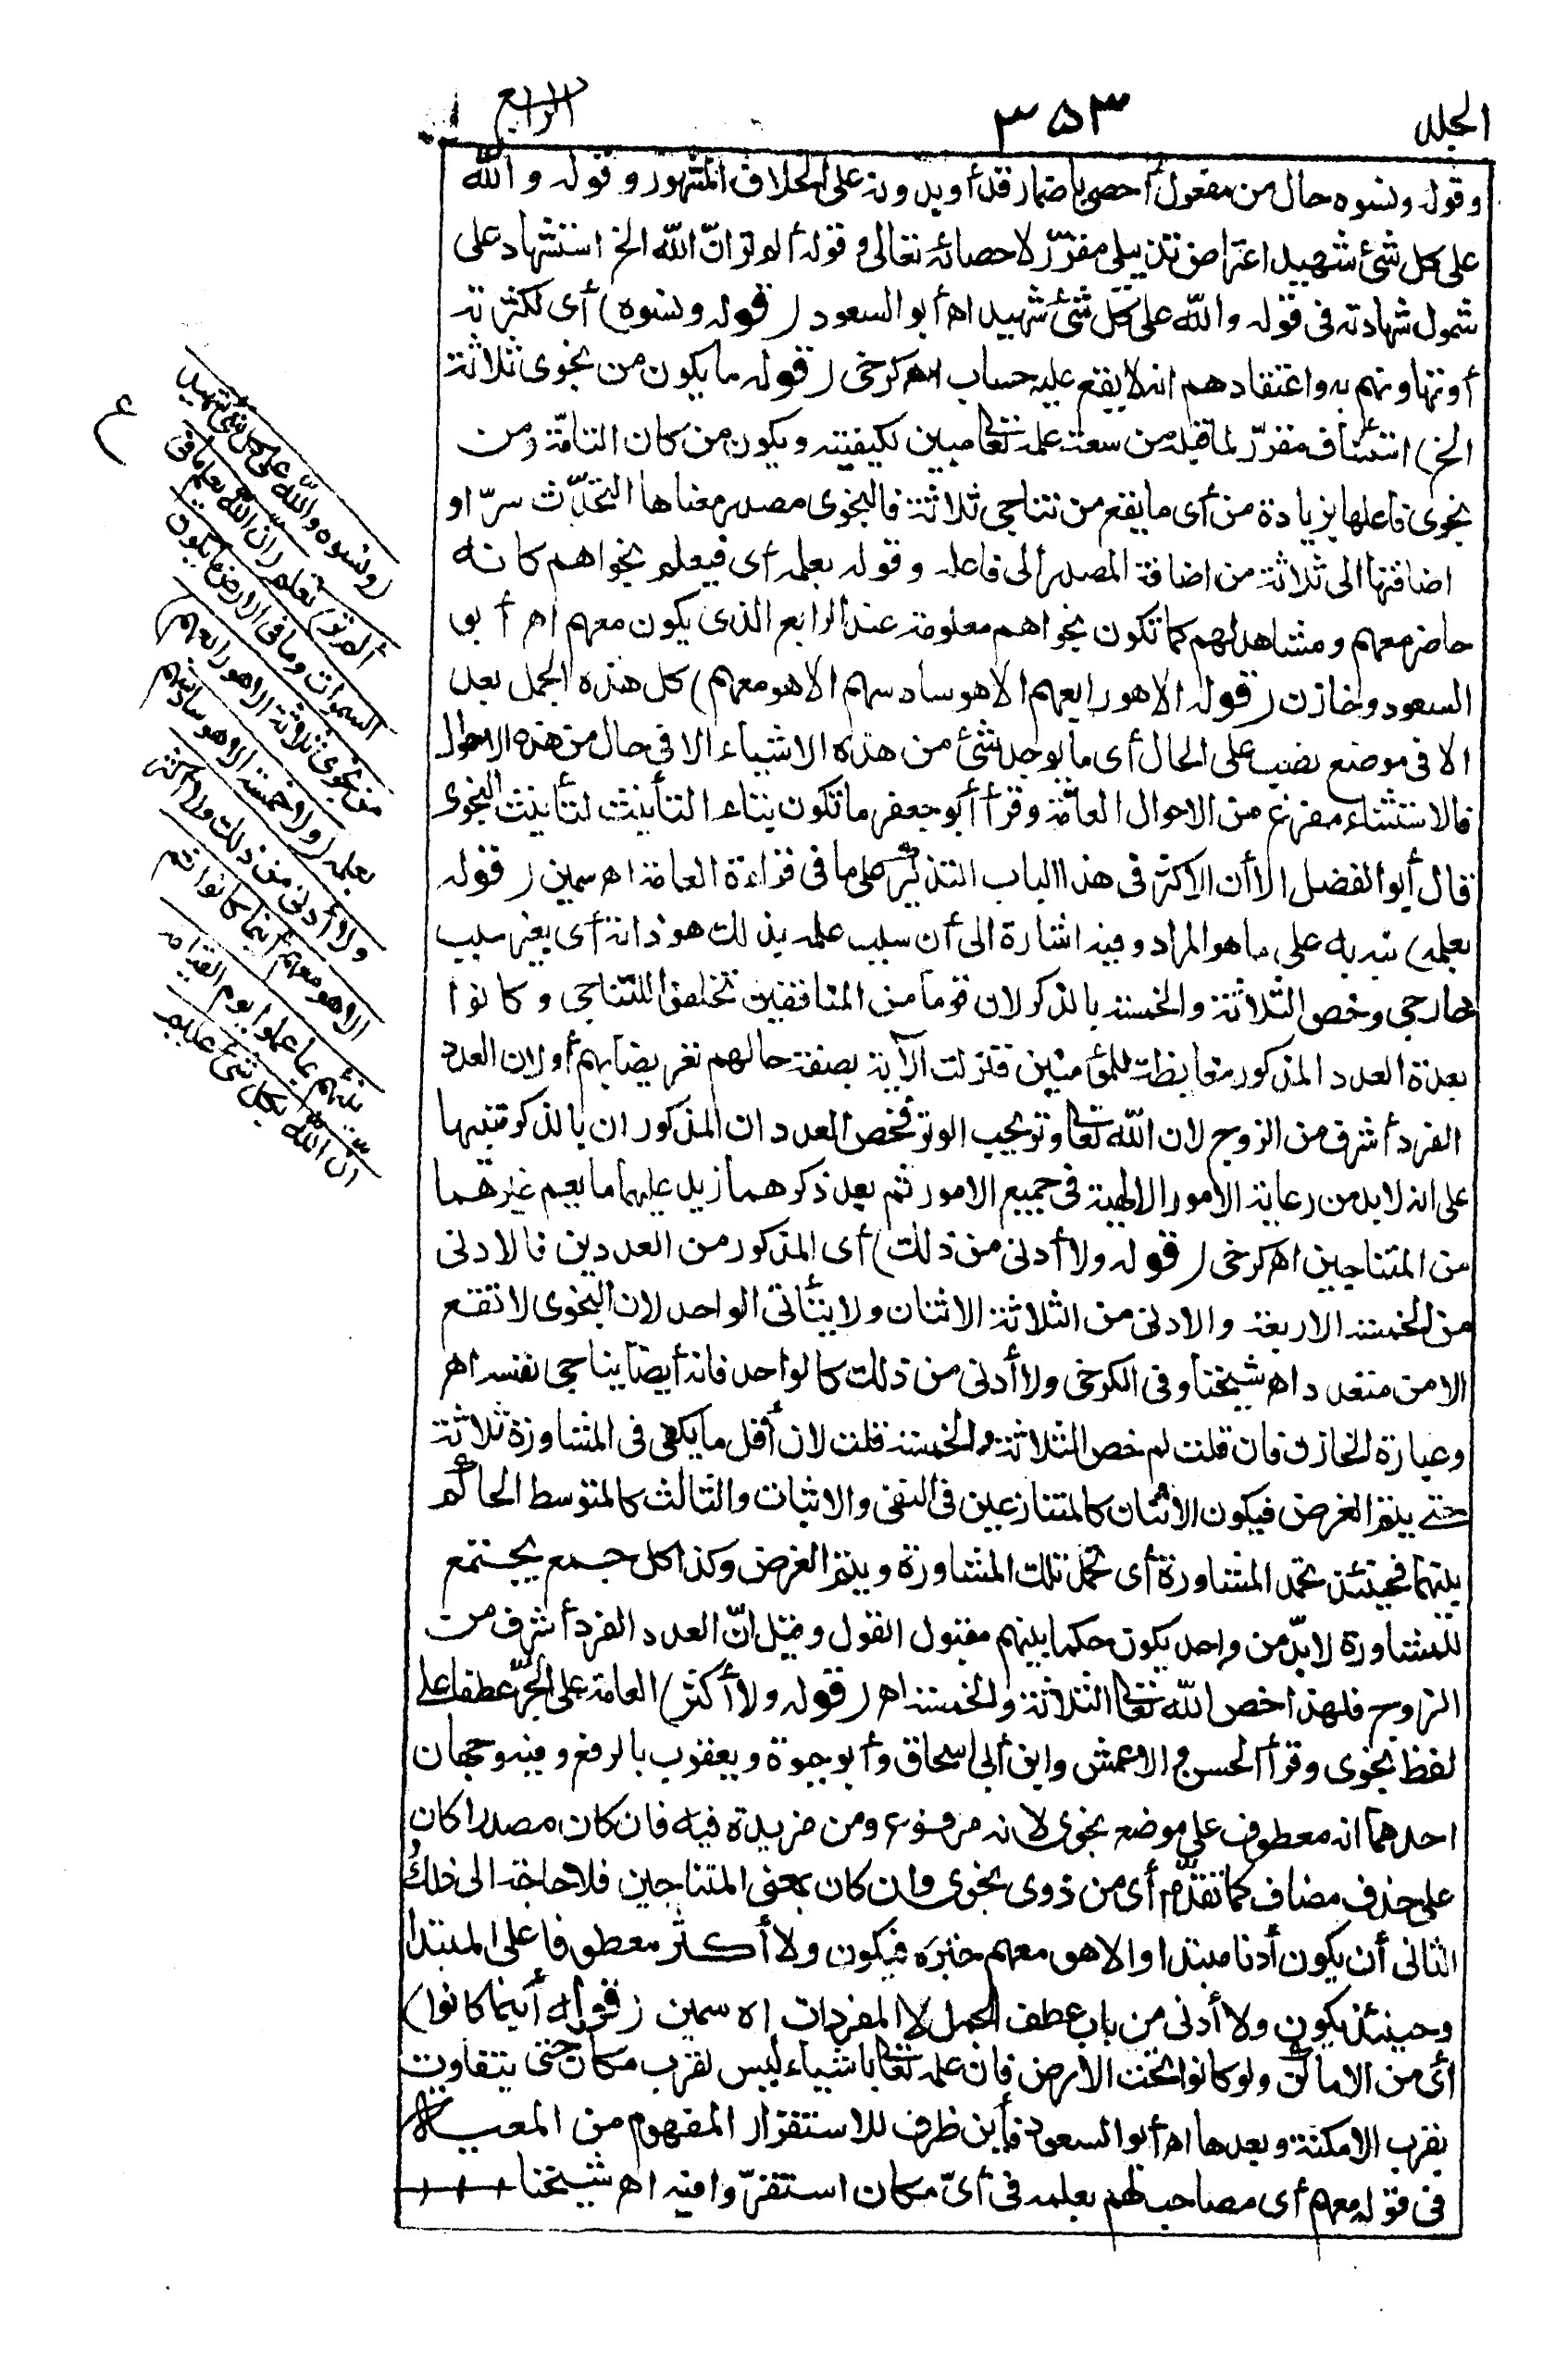 الجلد ٣٥٣ الرابع
وقوله ونسوه حال من مفعول أحصى باضمار قد أو بدونه على الخلاف المشهور وقوله والله
على كل شئ شهيد اعتراض تذييلى مقرّر لاحصائه تعالى وقوله ألم تر انّ الله الخ استشهاد على
شمول شهادته فى قوله والله على كل شئ شهيد اه أبو السعود (قوله ونسوه) أى لكثرته
أو تهاونهم به واعتقادهم انه لا يقع عليه حساب اه كرخى (قوله ما يكون من نجوى ثلاثة
الخ) استئناف مقرّر لما قبله من سعة علمه تعالى مبين لكيفيته ويكون من كان التامّة ومن
نجوى فاعلها بزيادة من أى ما يقع من تناجى ثلاثة فالنجوى مصدر معناها التحدّث سرّا و
اضافتها الى ثلاثة من اضافة المصدر الى فاعله وقوله بعلمه أى فيعلم نجواهم كانه
حاضر معهم ومشاهد لهم كما تكون نجواهم معلومة عند الرابع الذى يكون معهم اه أبو
السعود وخازن (قوله الا هو رابعهم الا هو سادسهم الا هو معهم) كل هذه الجمل بعد
الا فى موضع نصب على الحال أى ما يوجد شئ من هذه الاشياء الا فى حال من هذه الاحوال
فالاستثناء مفرغ من الاحوال العامّة وقرأ أبو جعفر ما تكون بتاء التأنيث لتأنيث النجوى
قال أبو الفضل الا أن الاكثر فى هذا الباب التذكير على ما فى قراءة العامة اه سمين (قوله
بعلمه) نبه به على ما هو المراد وفيه اشارة الى أن سبب علمه بذلك هو ذاته أى بغير سبب
خارجى وخص الثلاثة والخمسة بالذكر لان قوما من المنافقين تخلفوا للتناجى وكانوا
بعدة العدد المذكور مغايظة للمؤمنين فنزلت الآية بصفة حالهم تعريضا بهم أو لان العدد
الفرد أشرف من الزوج لان الله تعالى وتر يحب الوتر فخص العددان المذكوران بالذكر تنبيها
على انه لا بد من رعاية الامور الالهية فى جميع الامور ثم بعد ذكرهما زيد عليهما ما يعم غيرهما
من المتناجين اه كرخى (قوله ولا أدنى من ذلك) أى المذكور من العددين فالادنى
من الخمسة الاربعة والادنى من الثلاثة الاثنان ولا يتأتى الواحد لان النجوى لا تقع
الا من متعدد اه شيخنا وفى الكرخى ولا أدنى من ذلك كالواحد فانه أيضا يناجى نفسه اه
وعبارة الخازن فان قلت لم خص الثلاثة والخمسة قلت لان أقل ما يكفى فى المشاورة ثلاثة
حتى يتم الغرض فيكون الاثنان كالمتنازعين فى النفى والاثبات والثالث كالمتوسط الحاكم
بينهما فحينئذ تحمد المشاورة أى تحمل تلك المشاورة ويتم الغرض وكذا كل جمع يجتمع
للمشاورة لا بدّ من واحد يكون حكما بينهم مقبول القول وقيل انّ العدد الفرد أشرف من
الزوج فلهذا خص الله تعالى الثلاثة والخمسة اه (قوله ولا أكثر) العامة على الجرّ عطفا على
لفظ نجوى وقرأ الحسن والاعمش وابن أبى اسحاق وأبو حيوة ويعقوب بالرفع وفيه وجهان
احدهما انه معطوف على موضع نجوى لانه مرفوع ومن مزيدة فيه فان كان مصدرا كان
على حذف مضاف كما تقدّم أى من ذوى نجوى وان كان بمعنى المتناجين فلا حاجة الى ذلك
الثانى أن يكون أدنا مبتدا والا هو معهم خبره فيكون ولا أكثر معطوفا على المبتدا
وحينئذ يكون ولا أدنى من باب عطف الجمل لا المفردات اه سمين (قوله أينما كانوا)
أى من الاماكن ولو كانوا تحت الارض فان علمه تعالى باشياء ليس لقرب مكان حتى يتفاوت
بقرب الامكنة وبعدها اه أبو السعود فأين ظرف للاستقرار المفهوم من المعية
فى قوله معهم أى مصاحب لهم بعلمه فى أىّ مكان استقرّوا فيه اه شيخنا
(ونسوه والله على كل شئ شهيد
ألم تر) تعلم (انّ الله يعلم ما فى
السموات وما فى الارض ما يكون
من نجوى ثلاثة الا هو رابعهم)
بعلمه (ولا خمسة الا هو سادسهم
ولا أدنى من ذلك ولا أكثر
الا هو معهم أينما كانوا ثم
ينبّئهم بما عملوا يوم القيامة
انّ الله بكل شئ عليم
ع